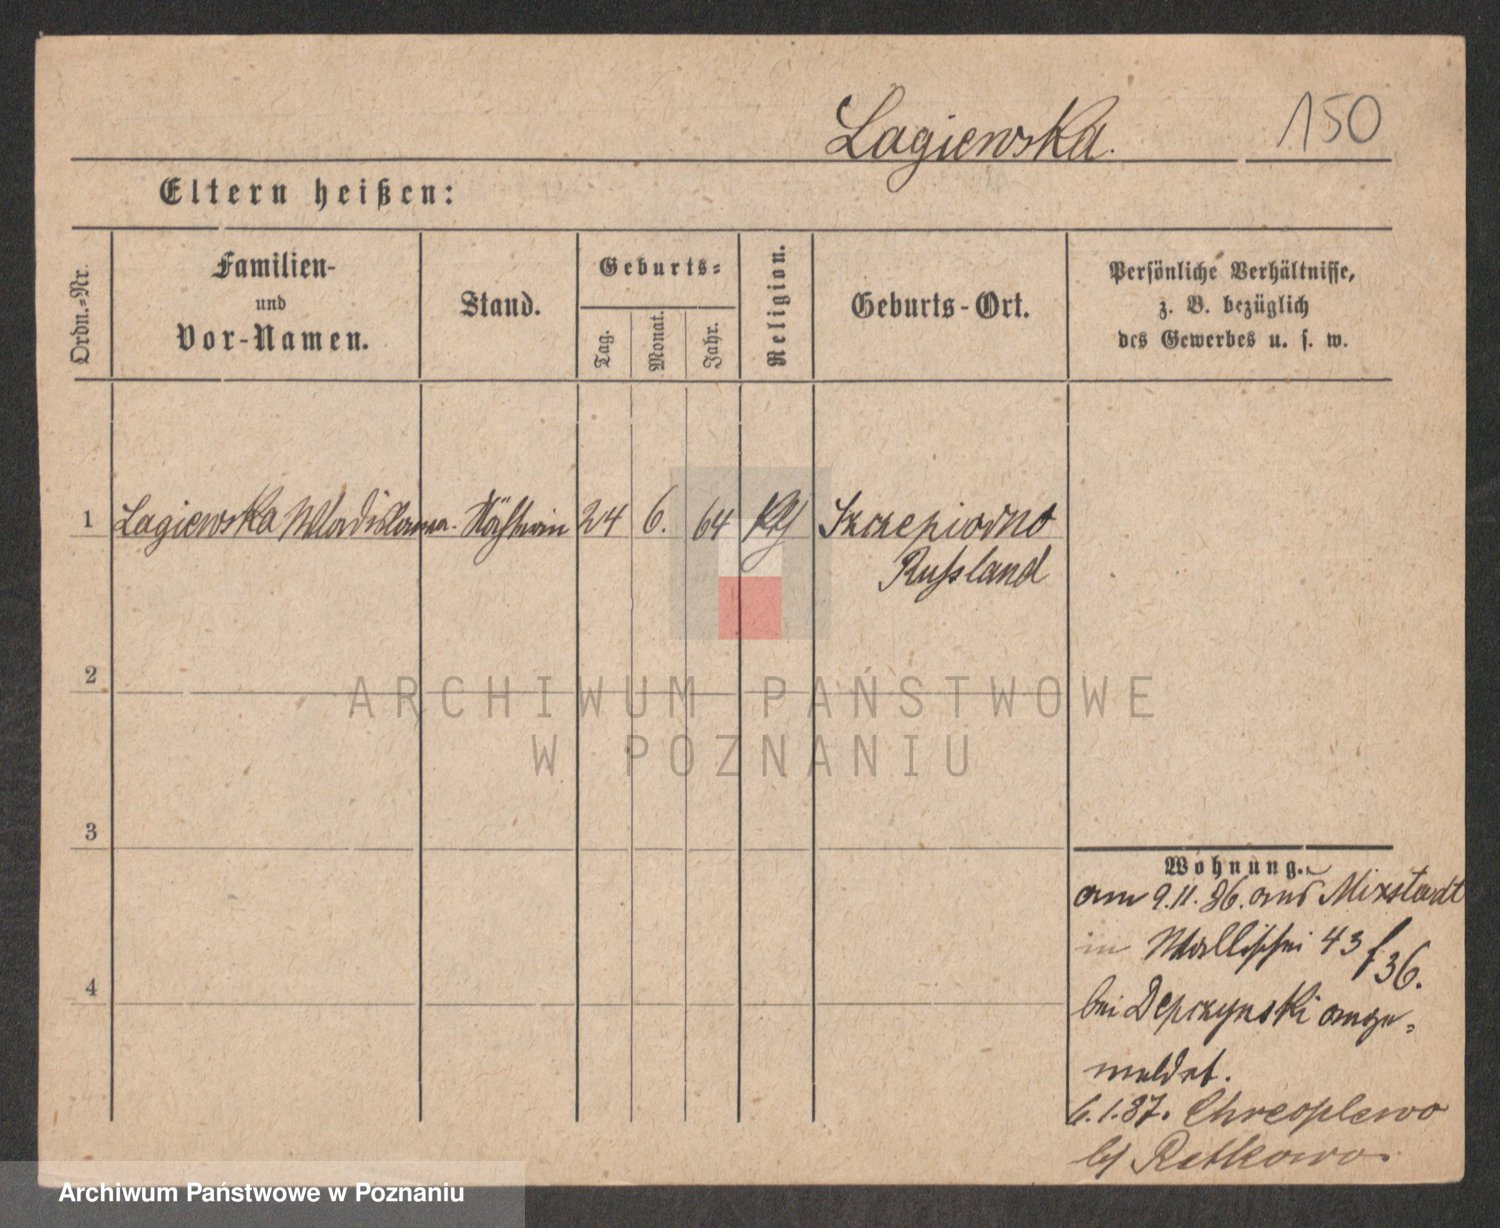 Lagiewska.
150
Eltern heißen:
Ordn.-Nr.
Familien-
und
Vor-Namen.
Stand.
Geburts-
Tag.
Monat.
Jahr.
Religion.
Geburts-Ort.
Persönliche Verhältnisse,
z. B. bezüglich
des Gewerbes u. s. w.
1 Lagiewska Wladislawa. Näherin 24 6. 64 Szczepiorno
Russland
2
3
4
ARCHIWUM PAŃSTWOWE
W POZNANIU
Wohnung.
am 9.11.86. aus Mixstadt
in Wallischei 43 f 36.
bei Depczynski ange-
meldet.
6.1.87.
Archiwum Państwowe w Poznaniu